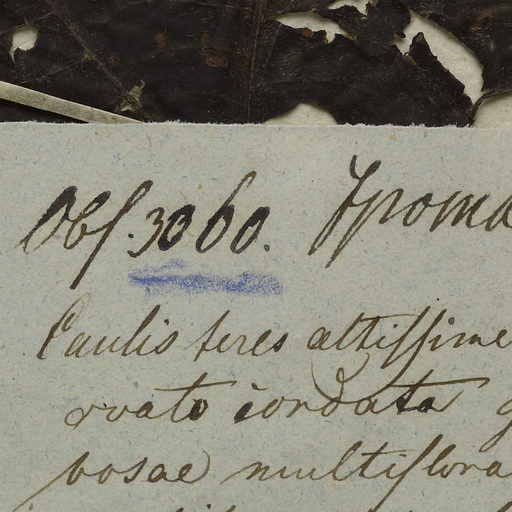 Obs. 3060. Ipomæ
Caulis teres altissime
ovato cordata g
bosae multiflora